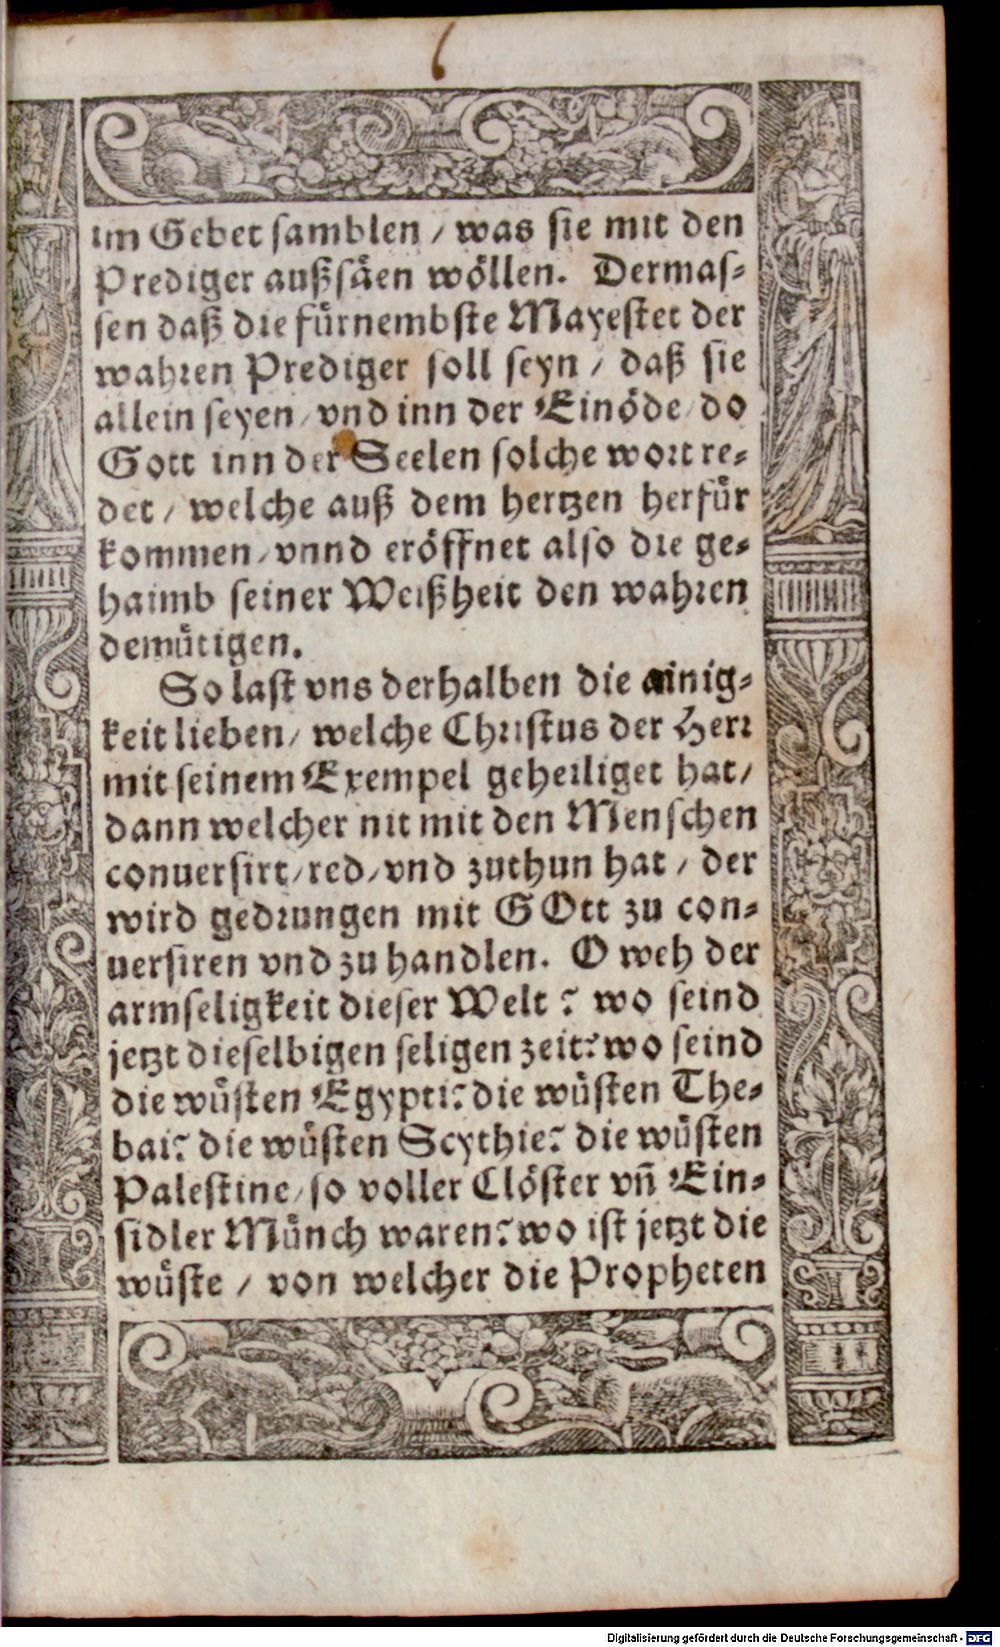 6
im Gebet samblen / was sie mit den
Prediger außsäen wöllen. Dermas-
sen daß die fürnembste Mayestet der
wahren Prediger soll seyn / daß sie
allein seyen / vnd inn der Einöde / do
Gott inn der Seelen solche wort re-
det / welche auß dem hertzen herfür
kommen / vnnd eröffnet also die ge-
haimb seiner Weißheit den wahren
demütigen.
So last vns derhalben die ainig-
keit lieben / welche Christus der Herr
mit seinem Exempel geheiliget hat /
dann welcher nit mit den Menschen
conuersirt / red / vnd zuthun hat / der
wird gedrungen mit GOtt zu con-
uersiren vnd zu handlen. O weh der
armseligkeit dieser Welt? wo seind
jetzt dieselbigen seligen zeit? wo seind
die wüsten Egypti? die wüsten The-
bai? die wüsten Scythie? die wüsten
Palestine / so voller Clöster vñ Ein-
sidler Münch waren? wo ist jetzt die
wüste / von welcher die Propheten
Digitalisierung gefördert durch die Deutsche Forschungsgemeinschaft - DFG